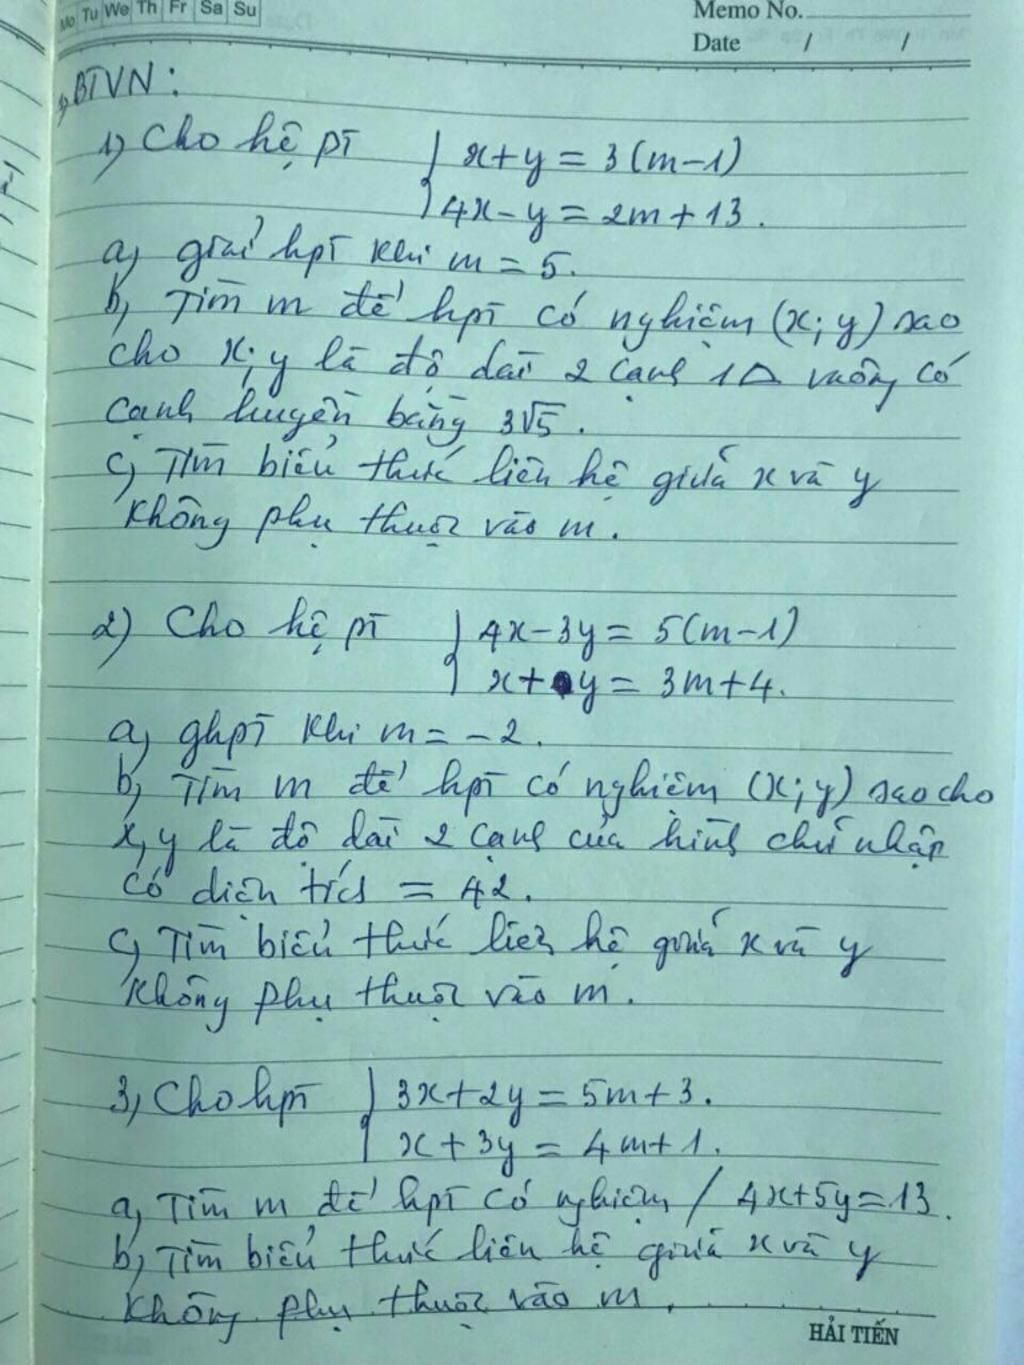 Mo Tu We Th Fr Sa Su
Memo No.
Date / /
BTVN:
1) Cho hệ pt { x+y = 3(m-1)
4x-y = 2m+13.
a) giải hpt khi m = 5.
b) Tìm m để hpt có nghiệm (x; y) sao
cho x; y là độ dài 2 cạnh 1Δ vuông có
cạnh huyền bằng 3√5.
c) Tìm biểu thức liên hệ giữa x và y
không phụ thuộc vào m.
2) Cho hệ pt { 4x-3y = 5(m-1)
x+y = 3m+4.
a) ghpt khi m = -2.
b) Tìm m để hpt có nghiệm (x; y) sao cho
x, y là độ dài 2 cạnh của hình chữ nhật
có diện tích = 42.
c) Tìm biểu thức liên hệ giữa x và y
không phụ thuộc vào m.
3) Cho hpt { 3x+2y = 5m+3.
x+3y = 4m+1.
a) Tìm m để hpt có nghiệm / 4x+5y=13.
b) Tìm biểu thức liên hệ giữa x và y
không phụ thuộc vào m.
HẢI TIẾN